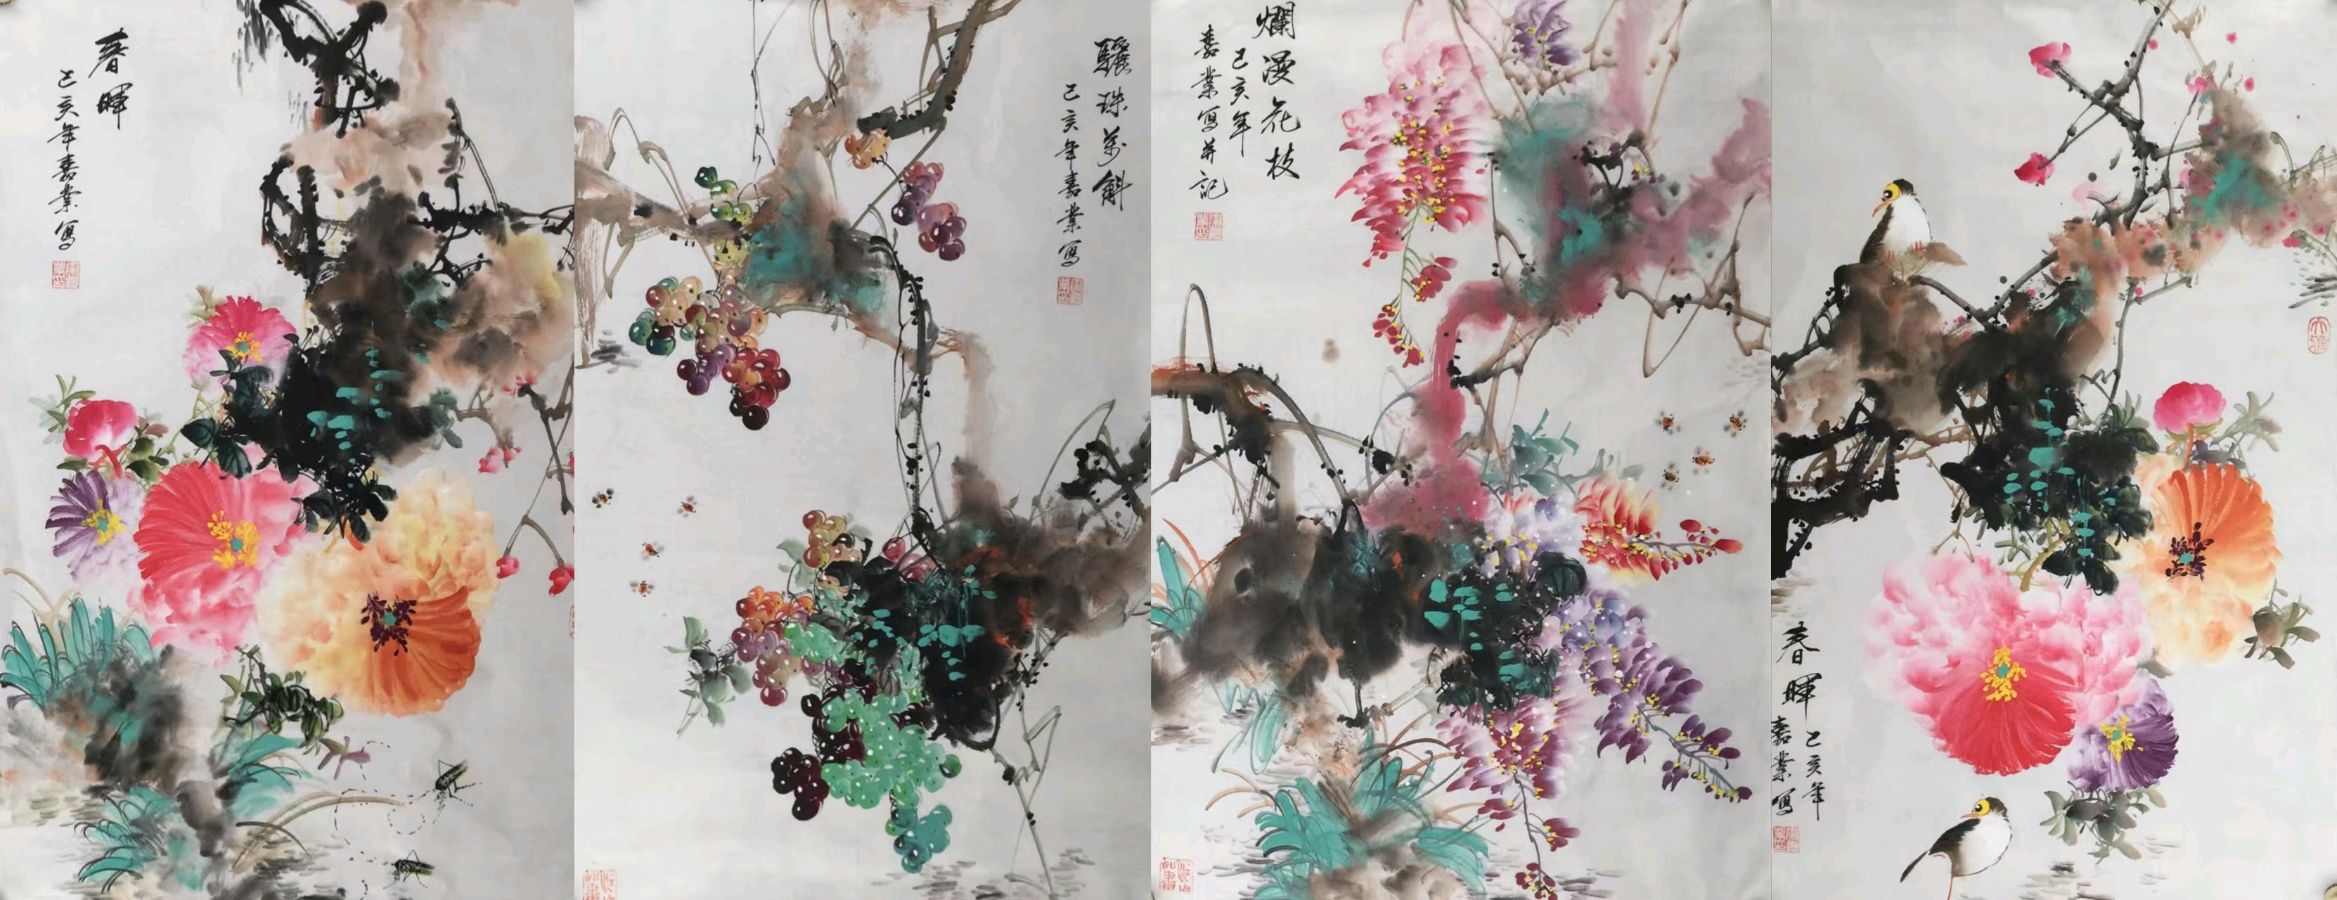 春暉
己亥年嘉業寫
驪珠萬斛
己亥年嘉業寫
爛漫花枝
己亥年
嘉業寫并記
春暉
己亥年
嘉業寫